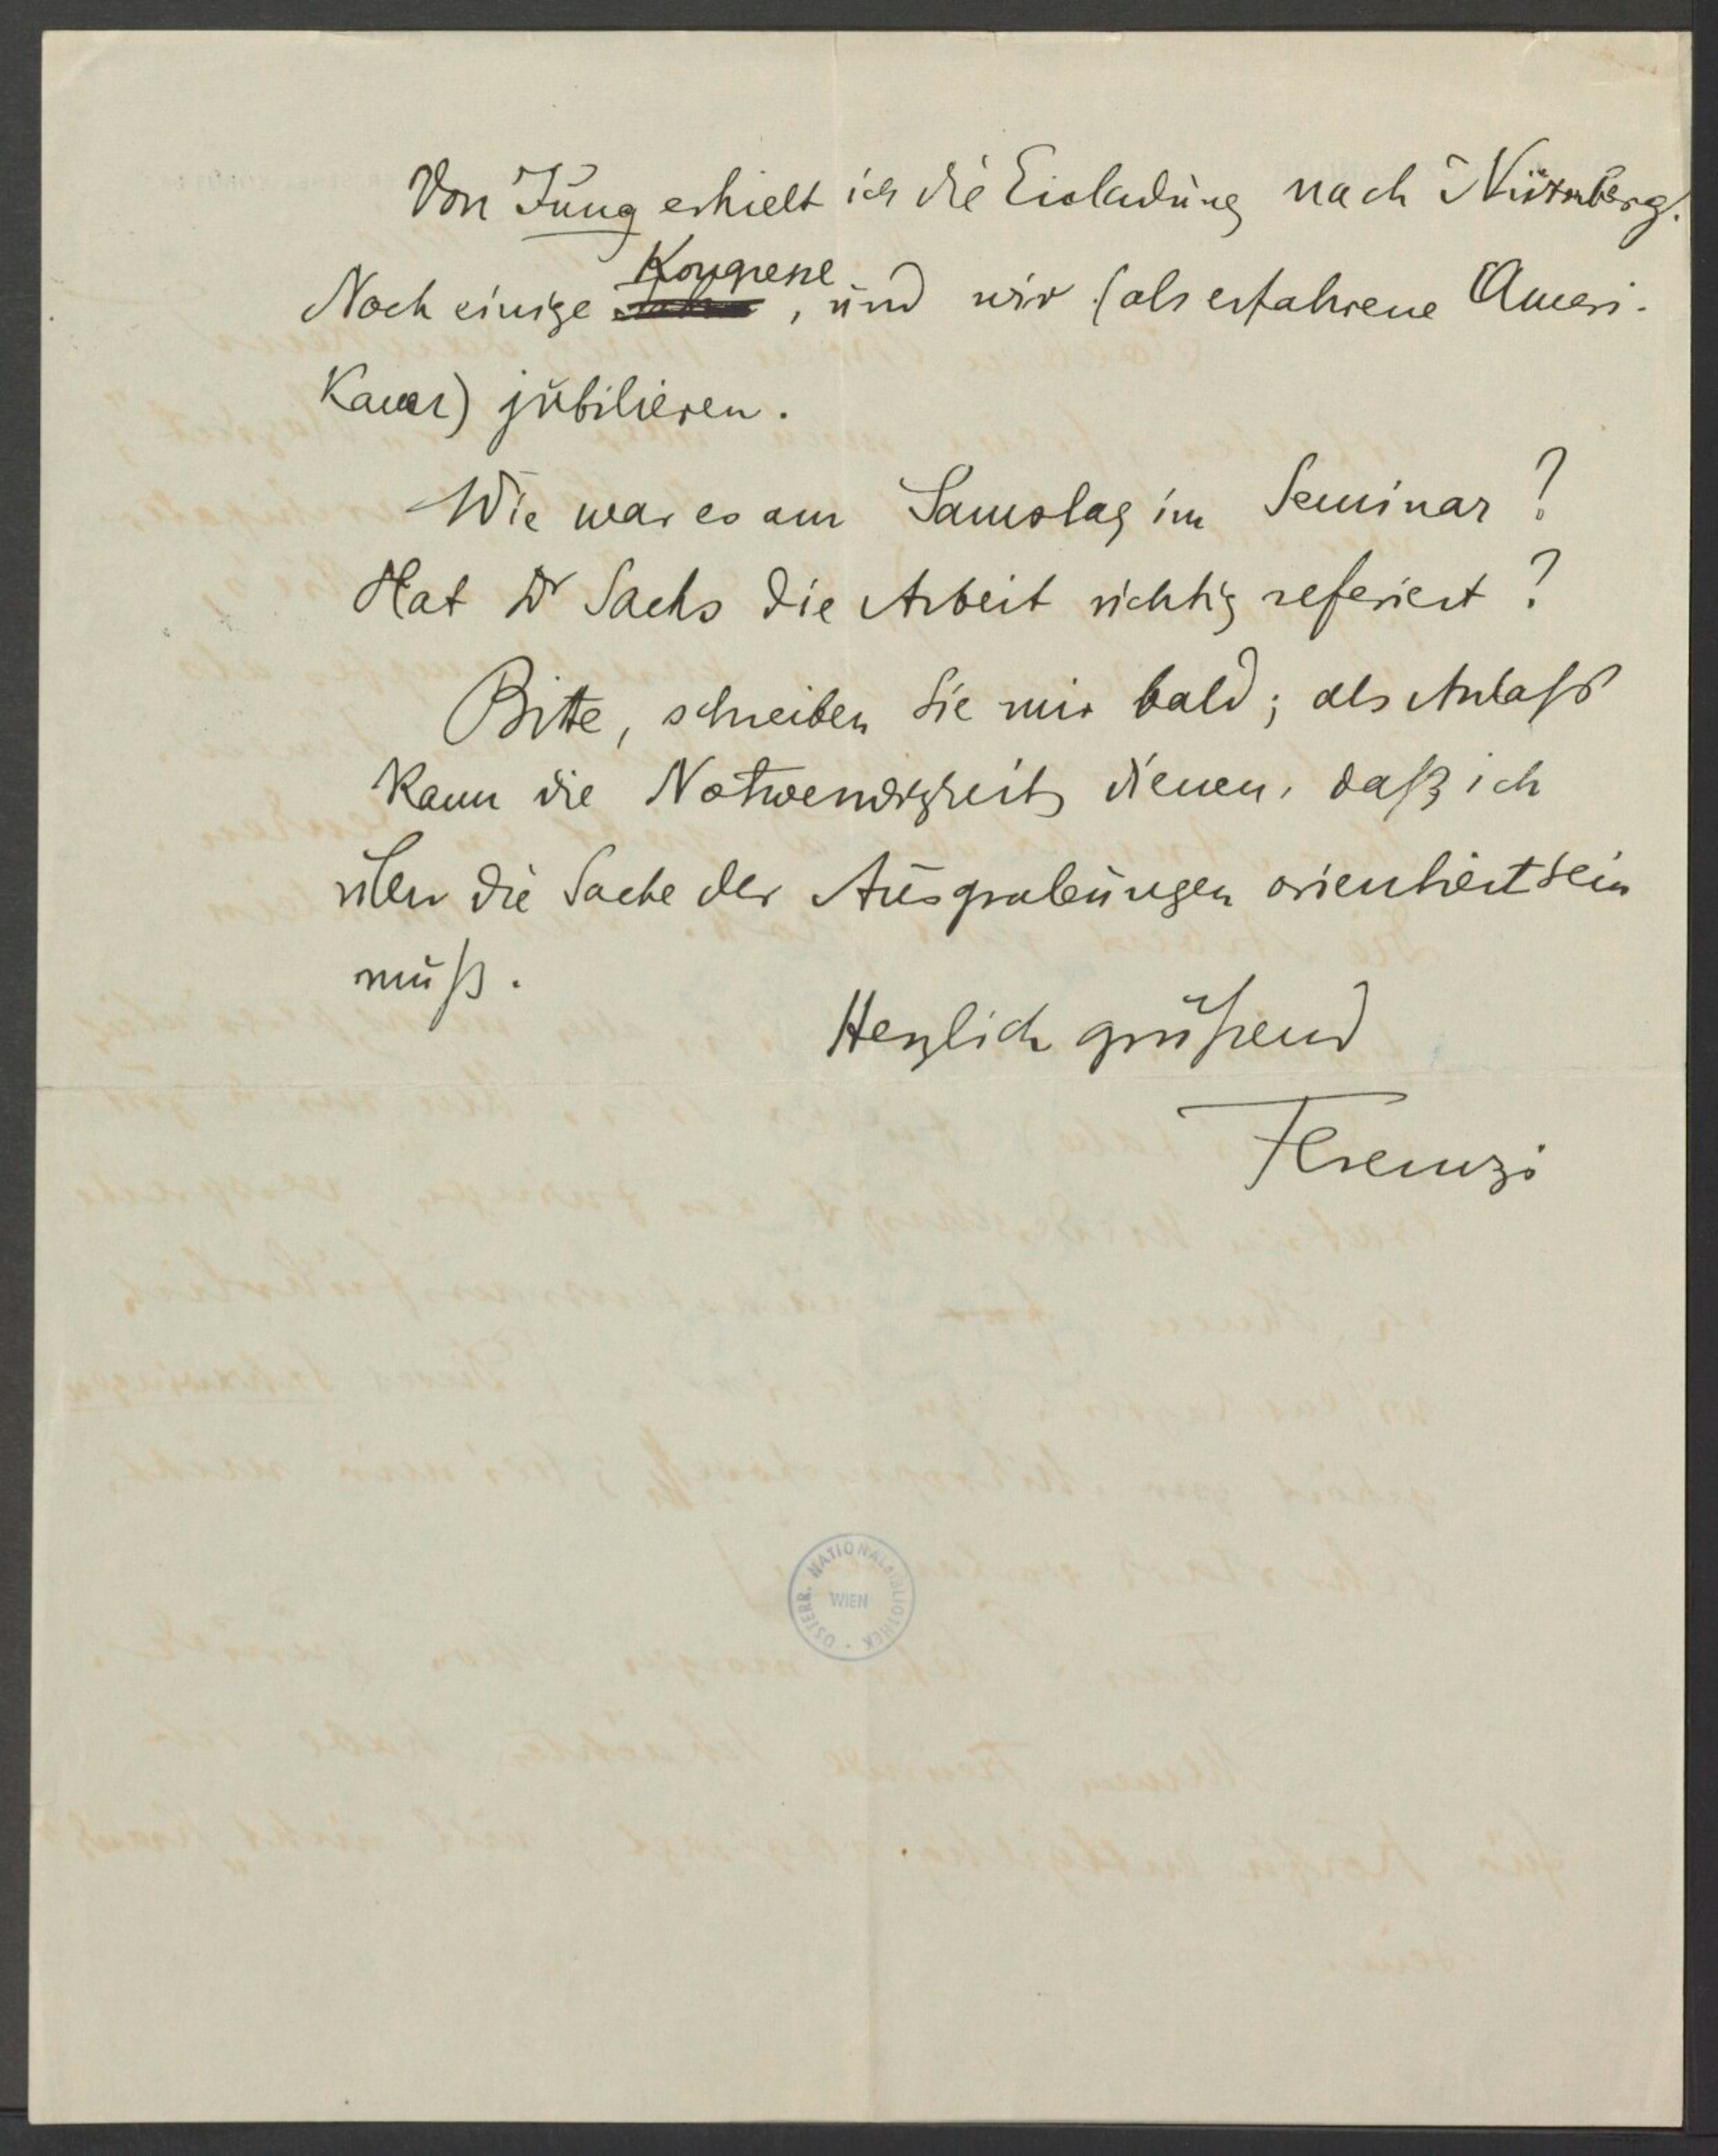 Von Jung erhielt ich die Einladung nach Nürnberg.
Noch einige Kongresse, und wir (als erfahrene Ameri-
kaner) jubilieren.
Wie war es am Samstag im Seminar?
Hat Dr Sachs die Arbeit richtig referiert?
Bitte, schreiben Sie mir bald; als Anlaß
kann die Notwendigkeit dienen, daß ich
über die Sache der Ausgrabungen orientiert sein
muß.
Herzlich grüßend
Ferenczi
ÖSTERR. NATIONALBIBLIOTHEK
WIEN